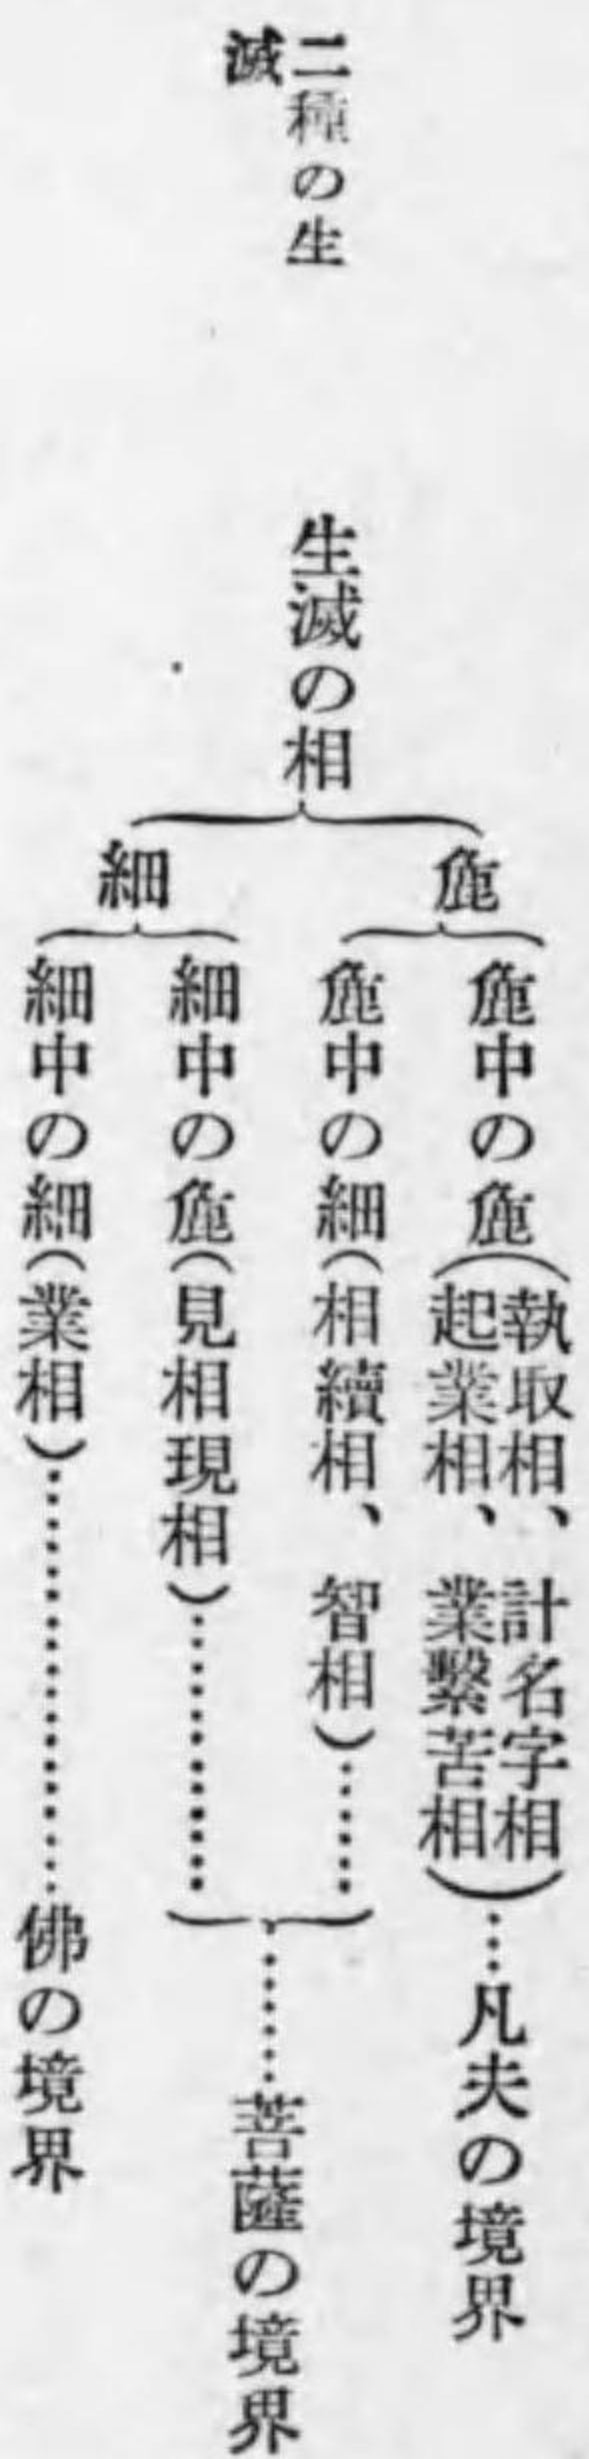 二種の生
滅
生滅の相
麁
麁中の麁(執取相、計名字相
起業相、業繫苦相)……凡夫の境界
麁中の細(相續相、智相)……
細
細中の麁(見相現相)……
……菩薩の境界
細中の細(業相)……佛の境界